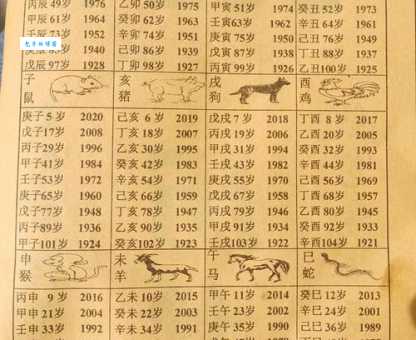 丙辰 49岁 1976 乙卯 50岁 1975 甲寅 51岁 1974 癸丑 52岁 1973
甲辰 61岁 1964 癸卯 62岁 1963 壬寅63岁 1962 辛丑 64岁 1961
岁 1952 辛卯 74岁 1951 庚寅 75岁 1950 己丑 76岁 1949
岁 1940 己卯 86岁 1939 戊寅 87岁 1938 丁丑 88岁 1937
戊辰 97岁 1928 丁卯 98岁 1927 丙寅 99岁 1926 乙丑100岁 1925
子 亥 戌 酉
鼠 猪 狗 鸡
庚子 5 岁 2020 己亥 6 岁 2019 戊戌 7 岁 2018 丁酉 8 岁 2017
戊子17岁 2008 丁亥 18岁 2007 丙戌 19岁 2006 乙酉 20岁 2005
丙子29岁 1996 乙亥 30岁 1995 甲戌 31岁 1994 癸酉 32岁 1993
甲子41岁 1984 癸亥 42岁 1983 壬戌 43岁 1982 辛酉 44岁 1981
壬子53岁 1972 辛亥 54岁 1971 庚戌 55岁 1970 己酉 56岁 1969
庚子65岁 1960 己亥 66岁 1959 戊戌 67岁 1958 丁酉 68岁 1957
戊子77岁 1948 丁亥 78岁 1947 丙戌 79岁 1946 乙酉 80岁 1945
丙子89岁 1936 乙亥 90岁 1935 甲戌 91岁 1934 癸酉 92岁 1933
甲子101岁 1924 癸亥102岁 1923 壬戌103岁 1922 辛酉104岁 1921
申 未 午 巳
猴 羊 马 蛇
丙申 9岁 2016 乙未 10岁 2015 甲午 11岁 2014 癸巳 12岁 2013
甲申 21岁 2004 癸未 22岁 2003 壬午 23岁 2002 辛巳 24岁 2001
壬申 33岁 1992 辛未 34岁 1991 庚午 35岁 1990 己巳 36岁 1989